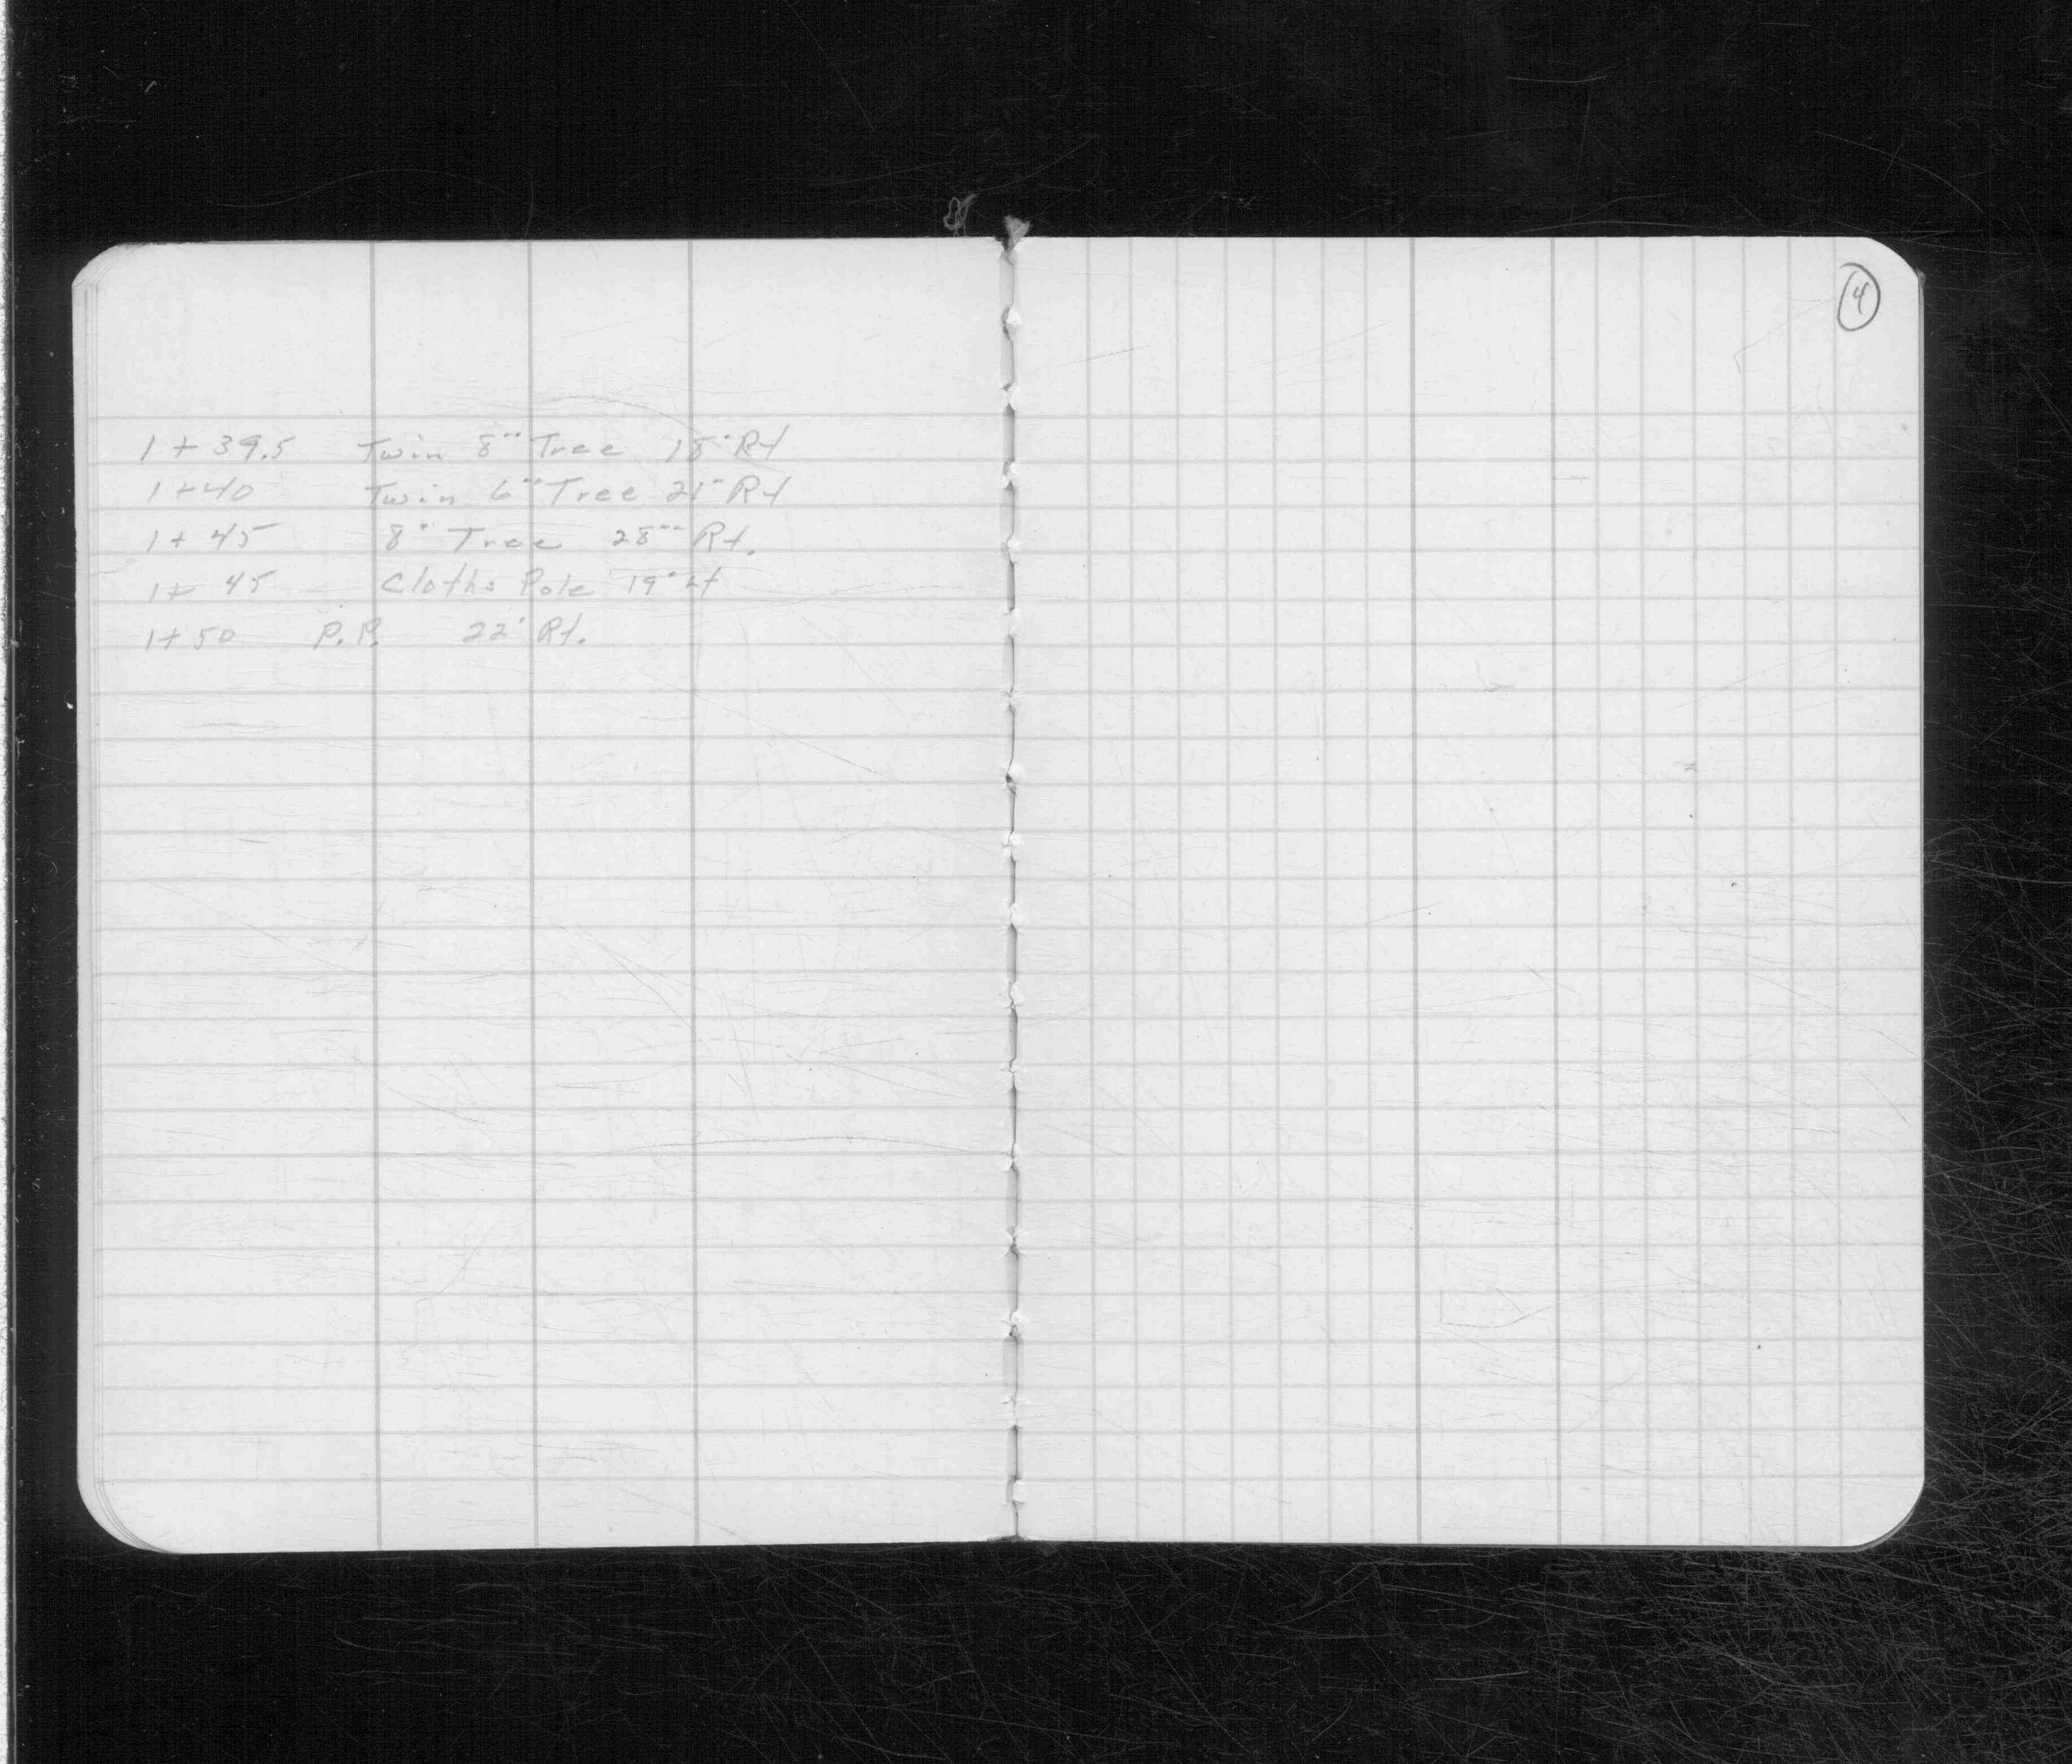 1+39.5 Twin 8" Tree 18' Rt
1+40 Twin 6" Tree 21' Rt
1+45 8" Tree 28' Rt.
1+45 Cloths Pole 19' Lt
1+50 P.P. 22' Rt.
4